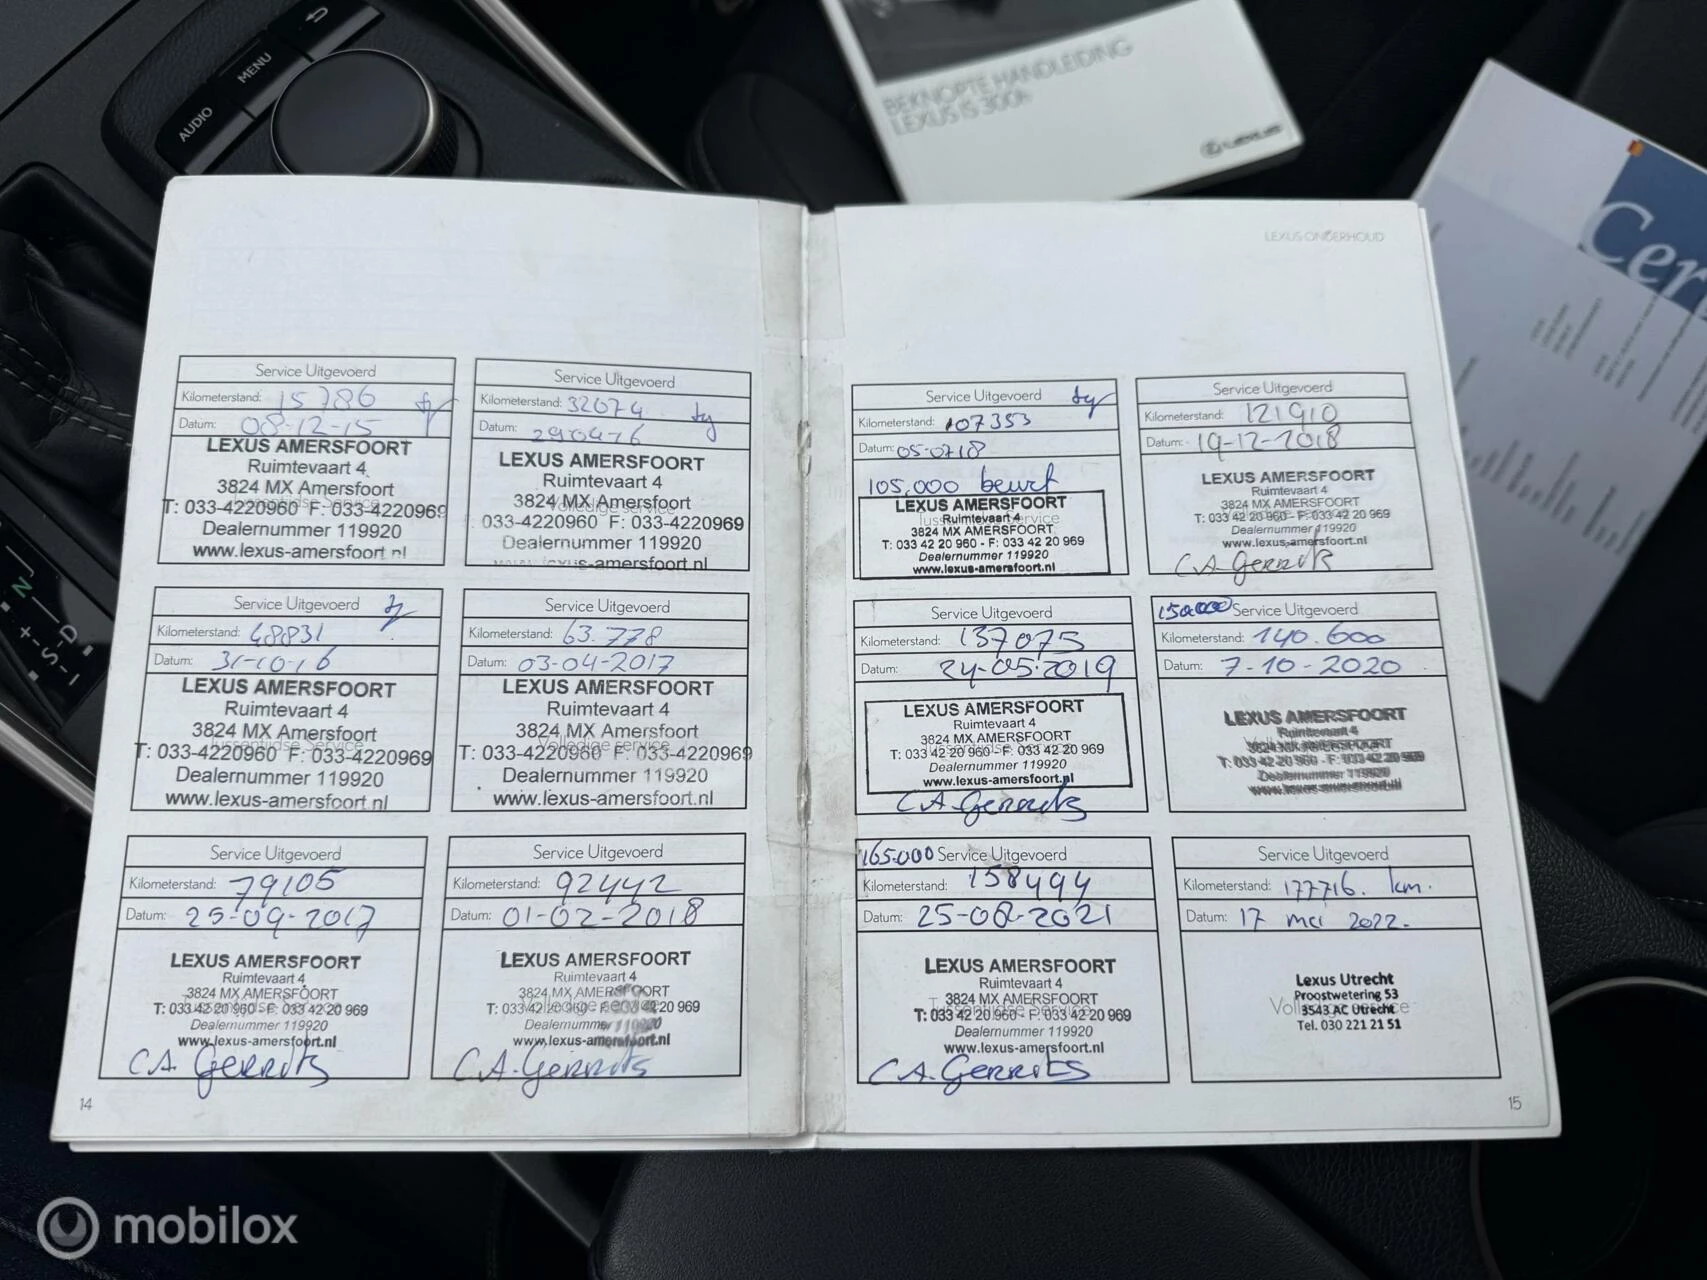 AUDIO
MENU
BEKNOPTE HANDLEIDING
LEXUS IS 300h
LEXUS
Cer
N
+
S-D
LEXUS ONDERHOUD
Service Uitgevoerd
Kilometerstand: 15786
Datum: 08-12-15
LEXUS AMERSFOORT
Ruimtevaart 4
3824 MX Amersfoort
Tussentijdse Service
T: 033-4220960 F: 033-4220969
Dealernummer 119920
www.lexus-amersfoort.nl
Service Uitgevoerd
Kilometerstand: 32674
Datum: 29-04-16
LEXUS AMERSFOORT
Ruimtevaart 4
3824 MX Amersfoort
Volledige service
033-4220960 F: 033-4220969
Dealernummer 119920
www.lexus-amersfoort.nl
Service Uitgevoerd
Kilometerstand: 48831
Datum: 31-10-16
LEXUS AMERSFOORT
Ruimtevaart 4
3824 MX Amersfoort
Tussentijdse Service
T: 033-4220960 F: 033-4220969
Dealernummer 119920
www.lexus-amersfoort.nl
Service Uitgevoerd
Kilometerstand: 63.778
Datum: 03-04-2017
LEXUS AMERSFOORT
Ruimtevaart 4
3824 MX Amersfoort
Volledige service
T: 033-4220960 F: 033-4220969
Dealernummer 119920
www.lexus-amersfoort.nl
Service Uitgevoerd
Kilometerstand: 79105
Datum: 25-09-2017
LEXUS AMERSFOORT
Ruimtevaart 4
3824 MX AMERSFOORT
T: 033 42 20 960 - F: 033 42 20 969
Dealernummer 119920
www.lexus-amersfoort.nl
C.A. Gerrits
Service Uitgevoerd
Kilometerstand: 92442
Datum: 01-02-2018
LEXUS AMERSFOORT
Ruimtevaart 4
3824 MX AMERSFOORT
T: 033 42 20 960 - F: 033 42 20 969
Dealernummer 119920
www.lexus-amersfoort.nl
C.A. Gerrits
14
Service Uitgevoerd
Kilometerstand: 107353
Datum: 05-07-18
105.000 beurt
LEXUS AMERSFOORT
Ruimtevaart 4
3824 MX AMERSFOORT
T: 033 42 20 960 - F: 033 42 20 969
Dealernummer 119920
www.lexus-amersfoort.nl
Service Uitgevoerd
Kilometerstand: 121910
Datum: 19-12-2018
LEXUS AMERSFOORT
Ruimtevaart 4
3824 MX AMERSFOORT
T: 033 42 20 960 - F: 033 42 20 969
Dealernummer 119920
www.lexus-amersfoort.nl
C.A. Gerrits
Service Uitgevoerd
Kilometerstand: 137075
Datum: 24-05-2019
LEXUS AMERSFOORT
Ruimtevaart 4
3824 MX AMERSFOORT
T: 033 42 20 960 - F: 033 42 20 969
Dealernummer 119920
www.lexus-amersfoort.nl
C.A. Gerrits
150.000 Service Uitgevoerd
Kilometerstand: 140.600
Datum: 7-10-2020
LEXUS AMERSFOORT
Ruimtevaart 4
3824 MX AMERSFOORT
T: 033 42 20 960 - F: 033 42 20 969
Dealernummer 119920
www.lexus-amersfoort.nl
165.000 Service Uitgevoerd
Kilometerstand: 158494
Datum: 25-08-2021
LEXUS AMERSFOORT
Ruimtevaart 4
3824 MX AMERSFOORT
T: 033 42 20 960 - F: 033 42 20 969
Dealernummer 119920
www.lexus-amersfoort.nl
C.A. Gerrits
Service Uitgevoerd
Kilometerstand: 177716. km.
Datum: 17 mei 2022.
Lexus Utrecht
Proostwetering 53
Volledige service
3543 AC Utrecht
Tel. 030 221 21 51
15
mobilox